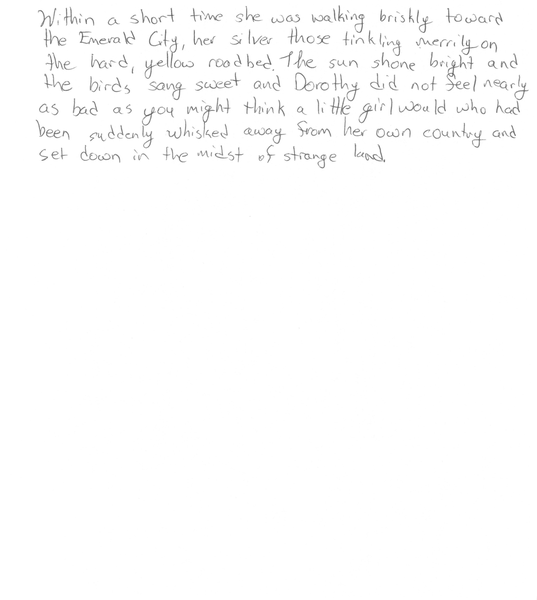 Within a short time she was walking briskly toward
the Emerald City, her silver those tinkling merrily on
the hard, yellow roadbed. The sun shone bright and
the birds sang sweet and Dorothy did not feel nearly
as bad as you might think a little girl would who had
been suddenly whisked away from her own country and
set down in the midst of strange land.